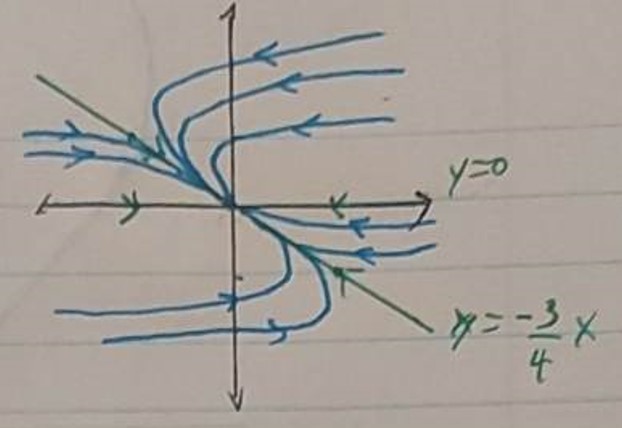 y=0
y = -3/4 x